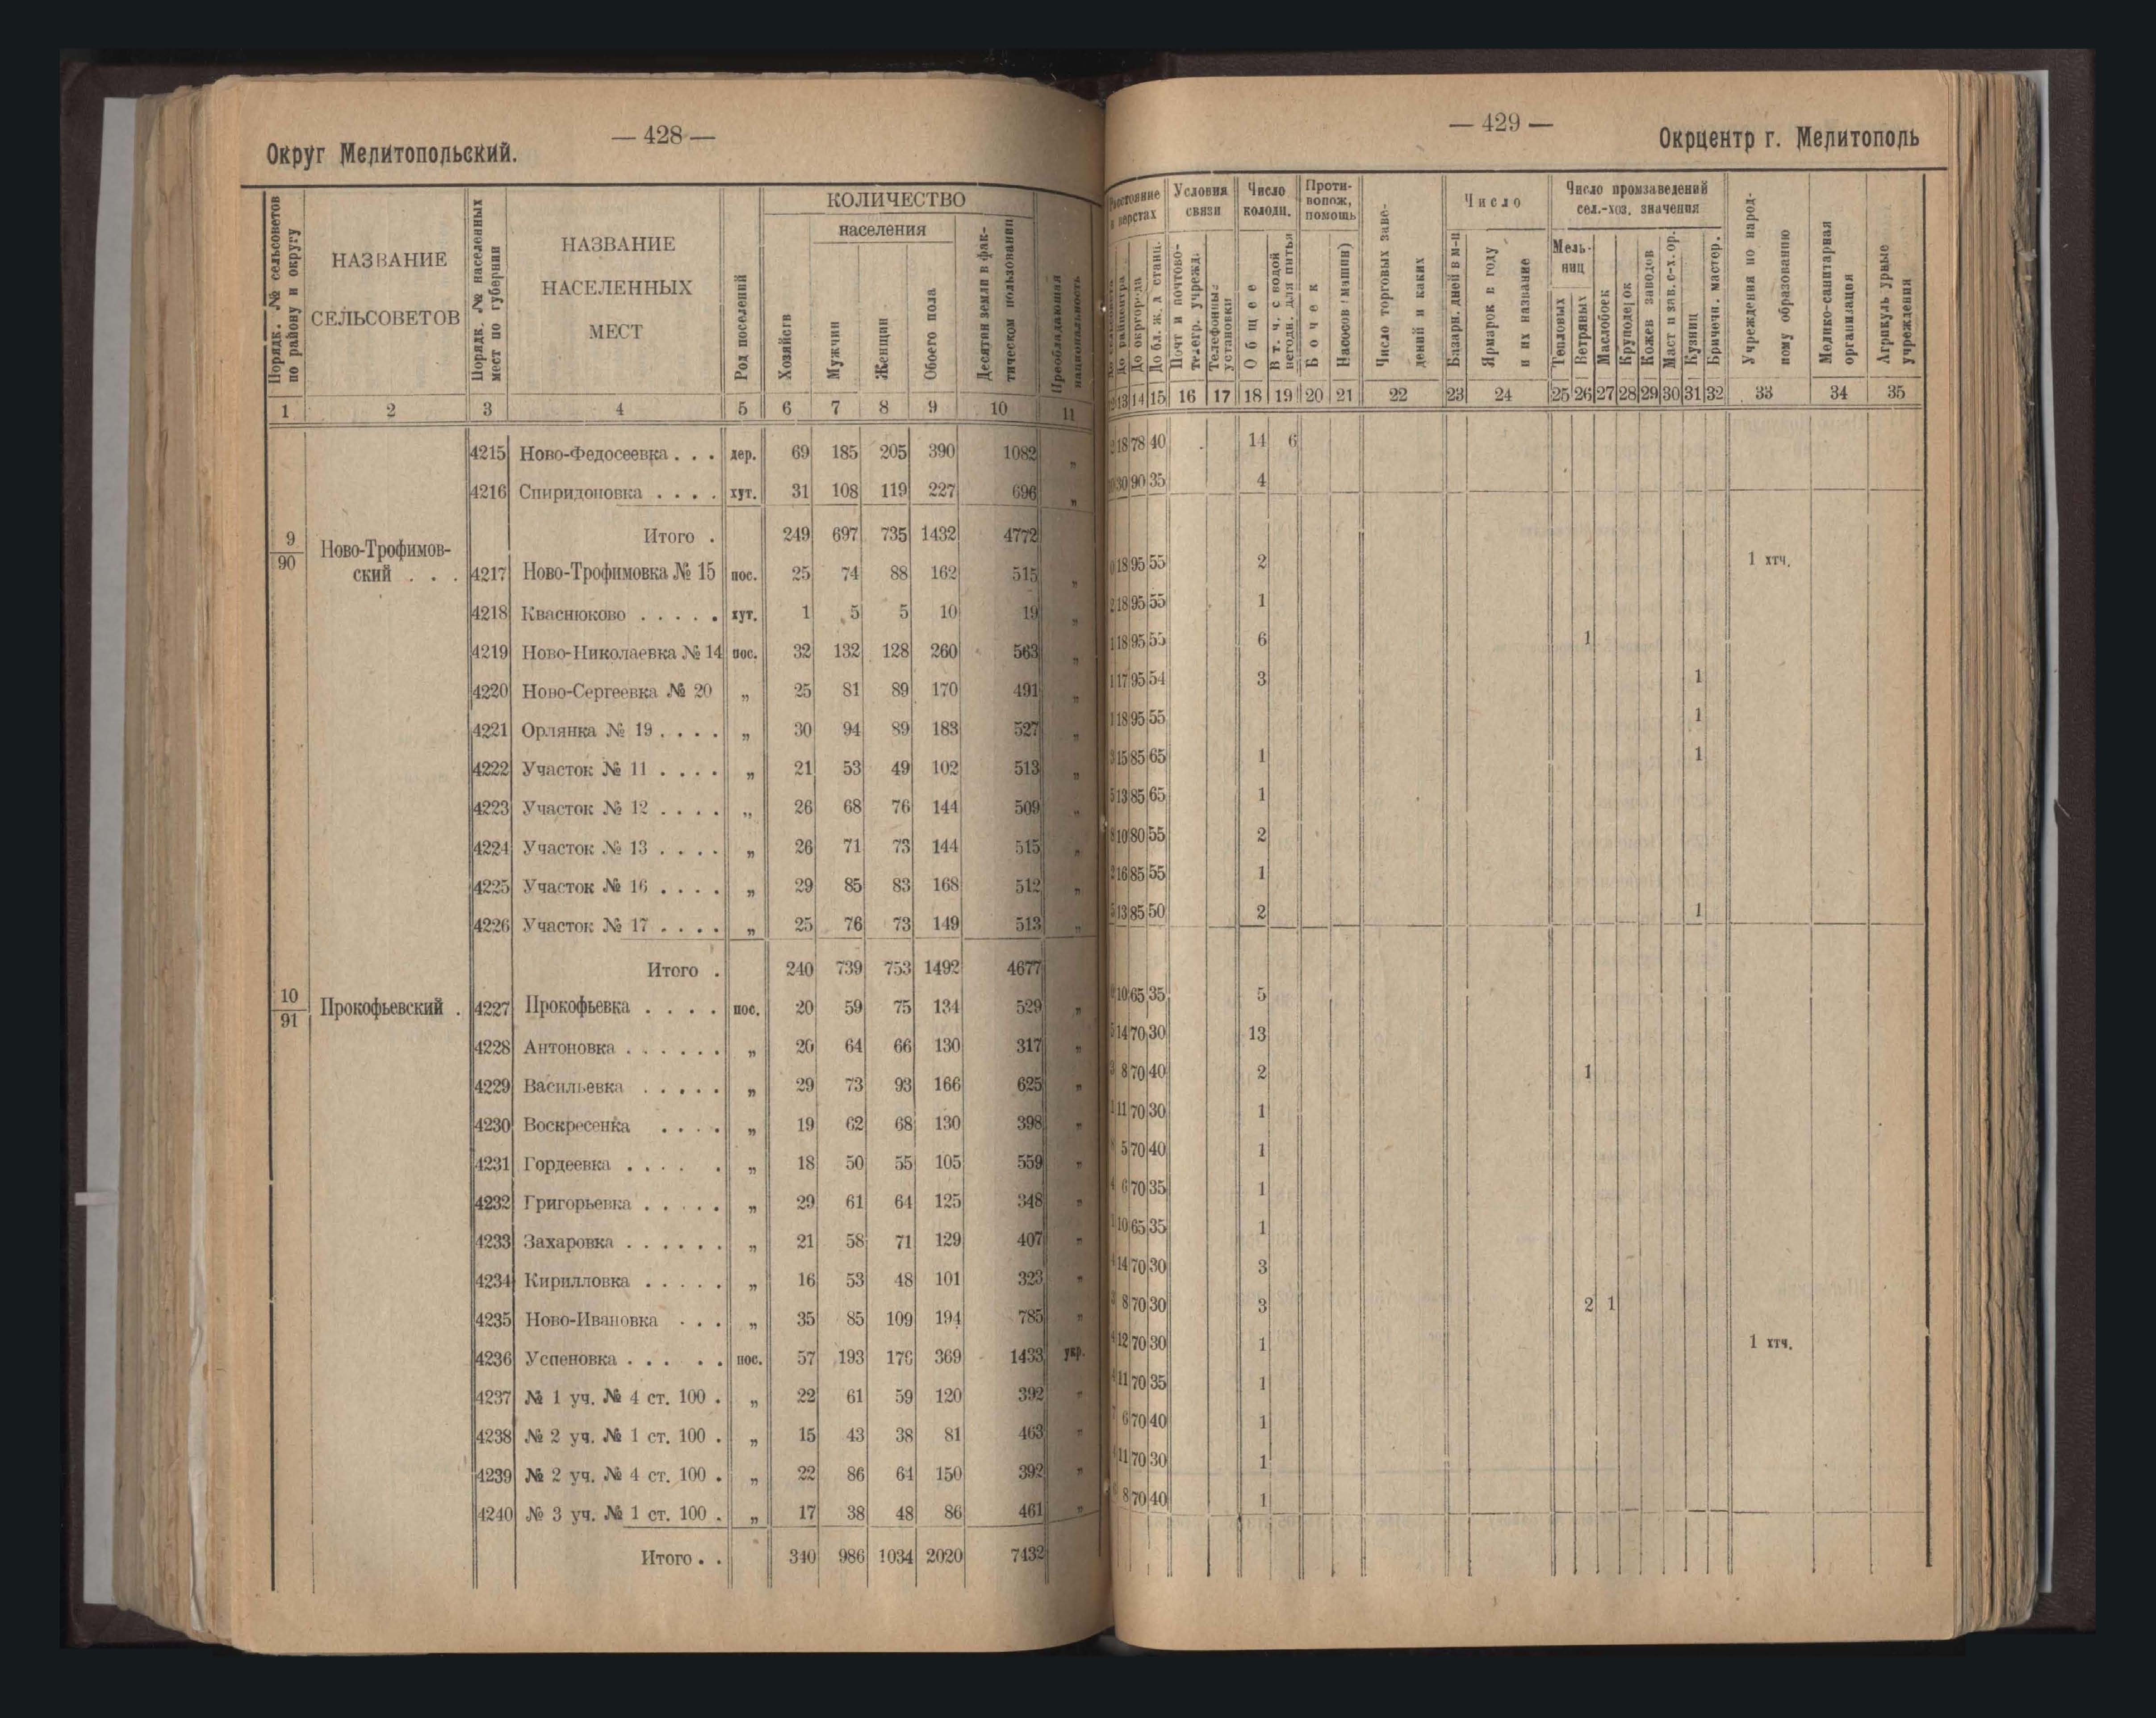 — 428 —
Округ Мелитопольский.
Порядк. № сельсоветов по району и округу
НАЗВАНИЕ СЕЛЬСОВЕТОВ
Порядк. № населенных мест по губернии
НАЗВАНИЕ НАСЕЛЕННЫХ МЕСТ
Род поселений
КОЛИЧЕСТВО
населения
Хозяйств
Мужчин
Женщин
Обоего пола
Десятин земли в фактическом пользовании
Преобладающая национальность
1 2 3 4 5 6 7 8 9 10 11
4215 Ново-Федосеевка . . . дер. 69 185 205 390 1082 „
4216 Спиридоновка . . . . хут. 31 108 119 227 696 „
Итого . 249 697 735 1432 4772
9/90 Ново-Трофимов-
ский . . . 4217 Ново-Трофимовка № 15 пос. 25 74 88 162 515 „
4218 Кваснюково . . . . . хут. 1 5 5 10 19 „
4219 Ново-Николаевка № 14 пос. 32 132 128 260 563 „
4220 Ново-Сергеевка № 20 „ 25 81 89 170 491 „
4221 Орлянка № 19 . . . . „ 30 94 89 183 527 „
4222 Участок № 11 . . . . „ 21 53 49 102 513 „
4223 Участок № 12 . . . . „ 26 68 76 144 509 „
4224 Участок № 13 . . . . „ 26 71 73 144 515 „
4225 Участок № 16 . . . . „ 29 85 83 168 512 „
4226 Участок № 17 . . . . „ 25 76 73 149 513 „
Итого . 240 739 753 1492 4677
10/91 Прокофьевский . 4227 Прокофьевка . . . . пос. 20 59 75 134 529 „
4228 Антоновка . . . . . . „ 20 64 66 130 317 „
4229 Васильевка . . . . . „ 29 73 93 166 625 „
4230 Воскресенка . . . . „ 19 62 68 130 398 „
4231 Гордеевка . . . . . „ 18 50 55 105 559 „
4232 Григорьевка . . . . . „ 29 61 64 125 348 „
4233 Захаровка . . . . . . „ 21 58 71 129 407 „
4234 Кирилловка . . . . . „ 16 53 48 101 323 „
4235 Ново-Ивановка . . . „ 35 85 109 194 785 „
4236 Успеновка . . . . . пос. 57 193 176 369 1433 укр.
4237 № 1 уч. № 4 ст. 100 . „ 22 61 59 120 392 „
4238 № 2 уч. № 1 ст. 100 . „ 15 43 38 81 463 „
4239 № 2 уч. № 4 ст. 100 . „ 22 86 64 150 392 „
4240 № 3 уч. № 1 ст. 100 . „ 17 38 48 86 461 „
Итого . . 340 986 1034 2020 7432
— 429 —
Окрцентр г. Мелитополь
Расстояние в верстах
До райцентра
До окргорода
До бл. ж. д станц.
Условия связи
Почт и почтово-телегр. учрежд.
Телефонные установки
Число колодц.
Общее
В т. ч. с водой негодн. для питья
Проти-вопож, помощь
Бочек
Насосов (машин)
Число торговых заве-дений и каких
Число
Базарн. дней в м-ц
Ярмарок в году и их название
Число промзаведений сел.-хоз. значения
Мель-ниц
Тепловых
Ветряных
Маслобоек
Крупорушек
Кожев заводов
Маст и зав. с-х. ор.
Кузниц
Бричечн. мастер.
Учреждения по народ-ному образованию
Медико-санитарная организация
Агрикультурные учреждения
13 14 15 16 17 18 19 20 21 22 23 24 25 26 27 28 29 30 31 32 33 34 35
18 78 40 14 6
30 90 35 4
18 95 55 2 1 хтч.
18 95 55 1
18 95 55 6 1
17 95 54 3 1
18 95 55 1
15 85 65 1 1
13 85 65 1
10 80 55 2
16 85 55 1
13 85 50 2 1
10 65 35 5
14 70 30 13
8 70 40 2 1
11 70 30 1
5 70 40 1
6 70 35 1
10 65 35 1
14 70 30 3
8 70 30 3 2 1
12 70 30 1 1 хтч.
11 70 35 1
6 70 40 1
11 70 30 1
8 70 40 1